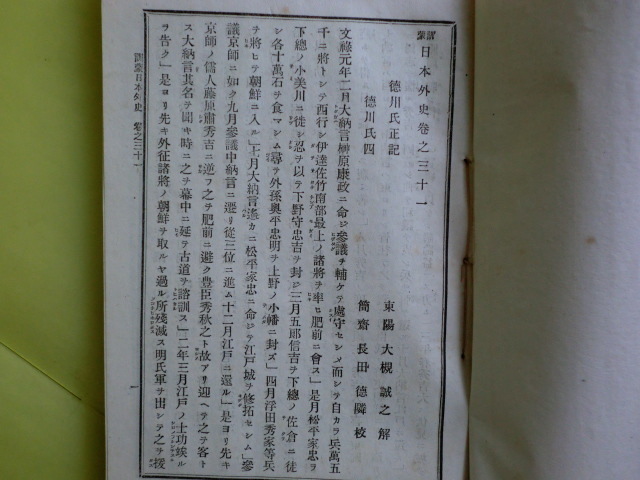 訓蒙日本外史卷之三十一
東陽 大槻誠之解
簡齋 長田德隣校
德川氏正記
德川氏四
文祿元年二月大納言榊原康政ニ命ジ參議ヲ輔ケテ處守セシメ而シテ自カラ兵萬五
千ニ將トシテ西行シ伊達佐竹南部最上ノ諸將ヲ率ヒ肥前ニ會ス」是月松平家忠ヲ
下總ノ小美川ニ徙シ忍ヲ以テ下野守忠吉ヲ封ジ三月五郎信吉ヲ下總ノ佐倉ニ徙
シ各十萬石ヲ食マシム尋デ外孫奧平忠明ヲ上野ノ小幡ニ封ズ」四月浮田秀家等兵
ヲ將ヒテ朝鮮ニ入ル」七月大納言遙カニ松平家忠ニ命ジテ江戶城ヲ修拓セシム」參
議京師ニ如ク九月參議中納言ニ遷リ從三位ニ進ム十二月江戶ニ還ル」是ヨリ先キ
京師ノ儒人藤原肅秀吉ニ逆フ之ヲ肥前ニ避ク豊臣秀秋之ト故アリ迎ヘテ之ヲ客ト
ス大納言其名ヲ聞キ時ニ之ヲ幕中ニ延テ古道ヲ諮訓ス」二年三月江戶ノ土功竣ル
ヲ告ク」是ヨリ先キ外征諸將ノ朝鮮ヲ取ルヤ過ル所殘滅ス明氏軍ヲ出シテ之ヲ援
訓蒙日本外史 卷之三十一